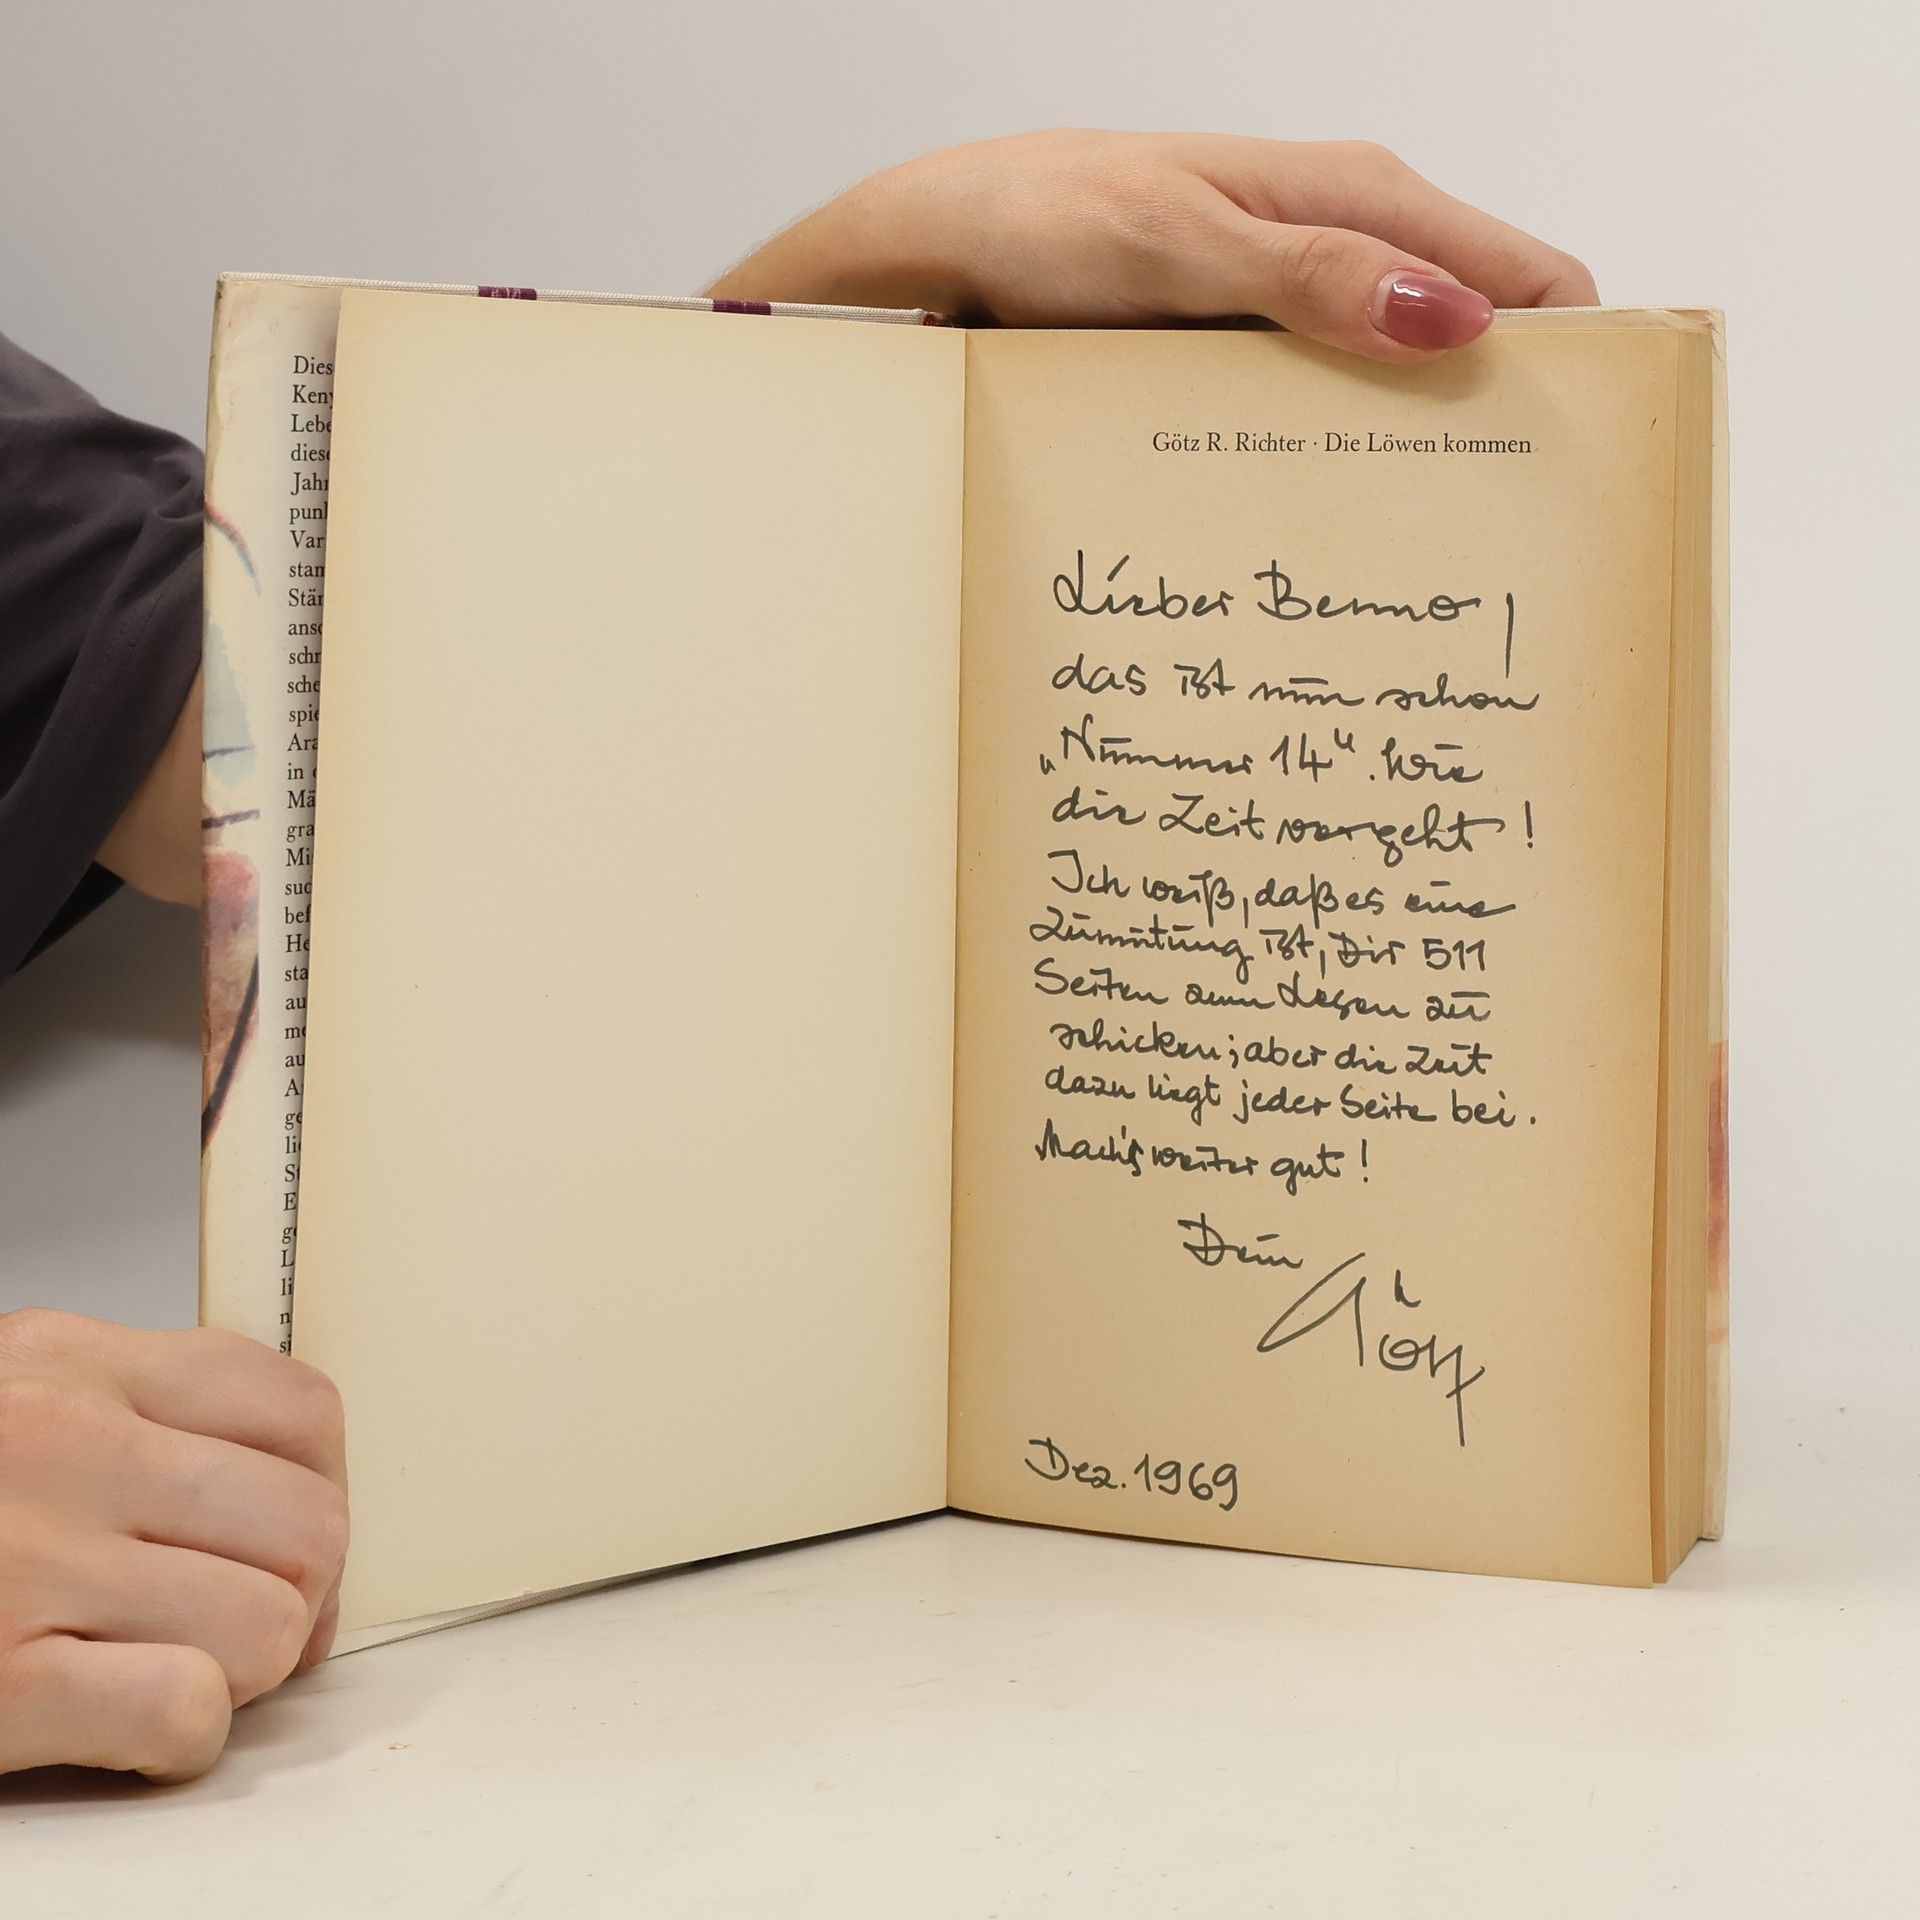 Dies
Keny
Lebe
diese
Jahr
punk
Var
stam
Stär
ansc
schr
sche
spie
Ara
in
Mä
gra
Mi
suc
bef
He
sta
au
me
au
A
ge
lie
St
E
ge
L
li
n
si
Götz R. Richter · Die Löwen kommen
Lieber Benno!
das ist nun schon
„Nummer 14“. Wie
die Zeit vergeht!
Ich weiß, daß es eine
Zumutung ist, Dir 511
Seiten zum Lesen zu
schicken; aber die Zeit
dazu liegt jeder Seite bei.
Mach's weiter gut!
Dein
Götz
Dez. 1969